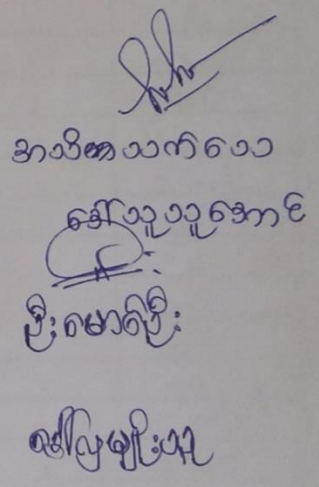 အသိသက်သေ
ဒေါ်သူသူအောင်
ဦးမောင်ဦး
ဒေါ်လှမျိုးသူ